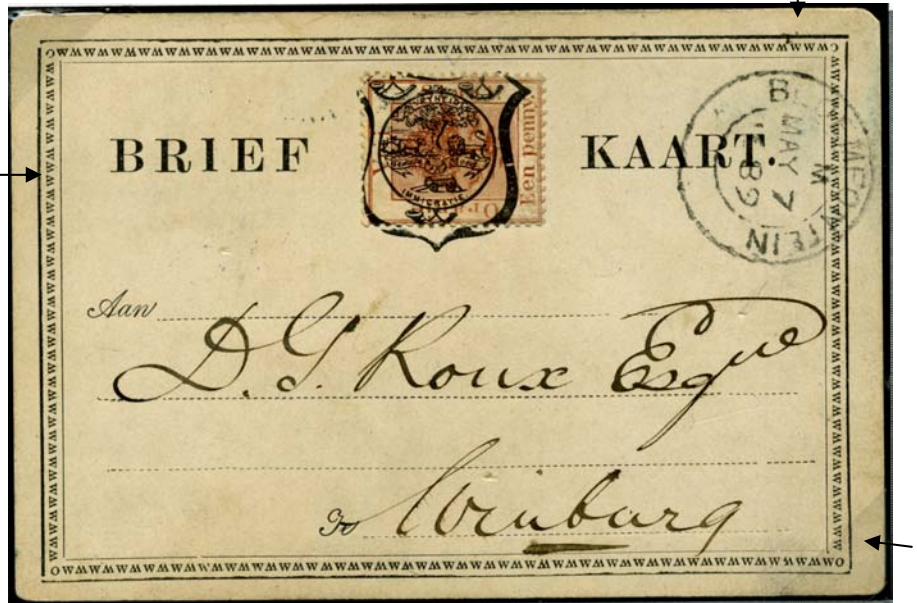 BRIEF KAART.
Een penny
IMMIGRATIE
BLOEMFONTEIN
M
MAY 7
89
Aan
D. G. Roux Esqre
Te Winburg